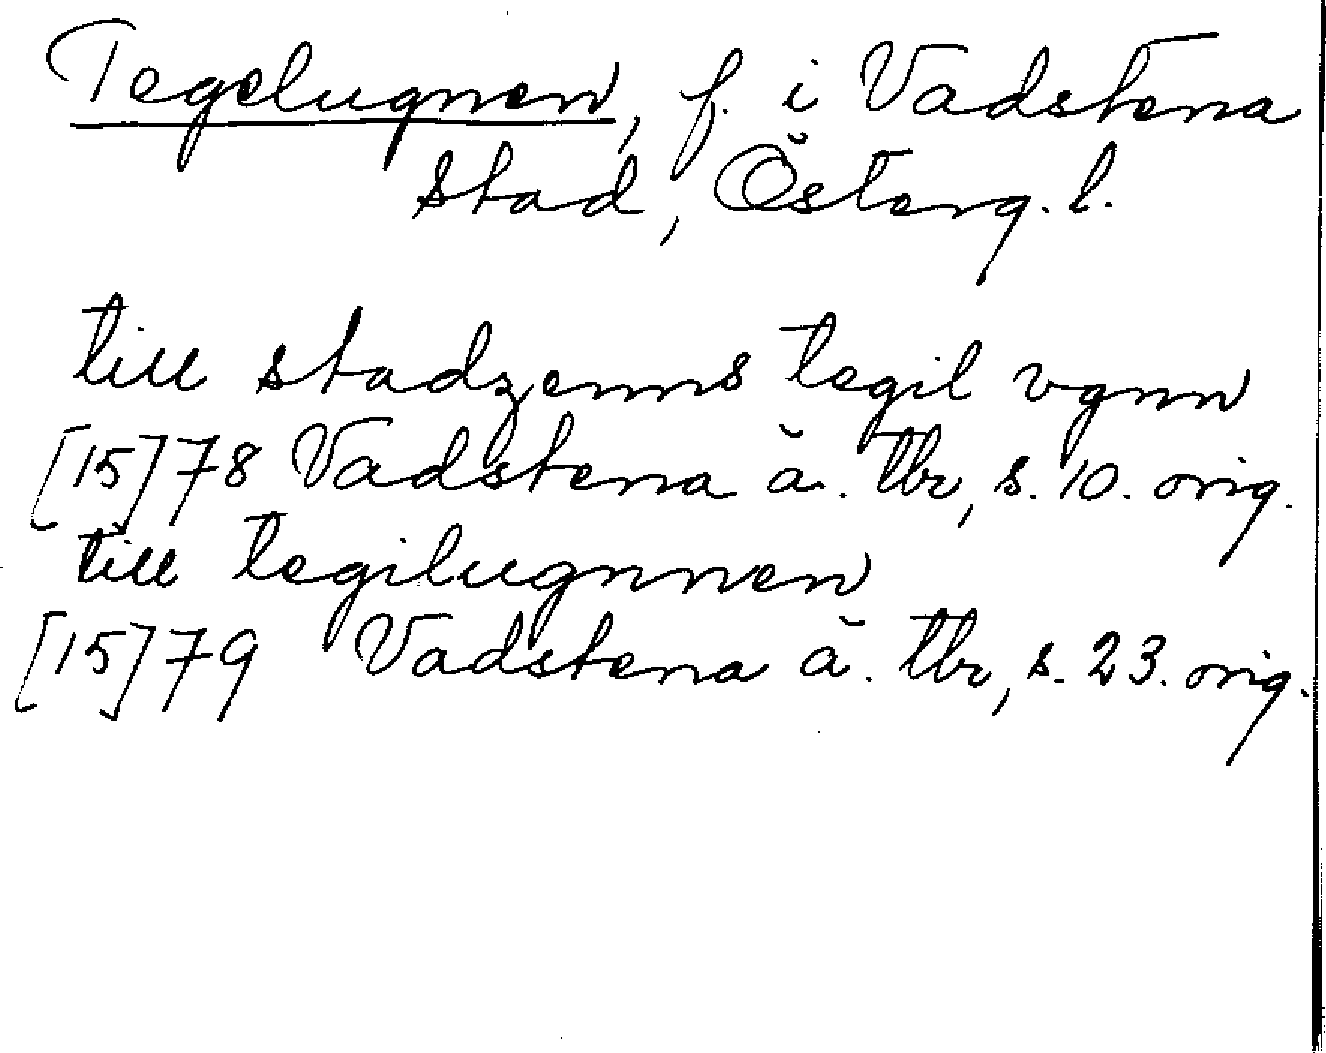 Tegelugnen, f. i Vadstena
stad, Österg. l.
till stadzenns tegil vgnn
[15]78 Vadstena ä. tbr, s. 10. orig.
till tegilugnnen
[15]79 Vadstena ä. tbr, s. 23. orig.